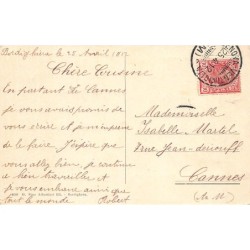 Bordighera le 28 Avril 19
Chère Cousine
En partant de Cannes
je vous avais promis de
vous écrire et je m'empresse
de le faire. J'espère que
vous allez bien, je continue
à bien travailler et
je vous embrasse ainsi que
tout le monde Robert
Mademoiselle
Isabelle Martel
rue Jean
Cannes
(A. M.)